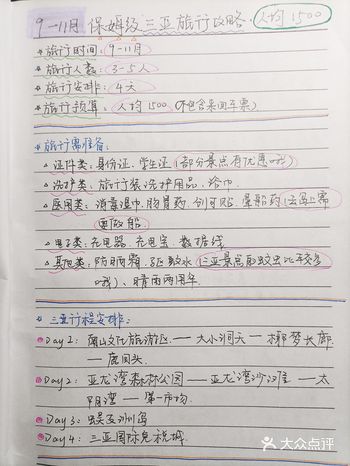 9-11月 保姆级三亚旅行攻略. 人均1500
旅行时间: 9-11月
旅行人数: 3-5人
旅行安排: 4天
旅行预算: 人均1500 (不包含来回车票)
旅行需准备:
证件类: 身份证、学生证 (部分景点有优惠哦)
洗护类: 旅行装洗护用品、浴巾
医用类: 消毒湿巾、肠胃药、创可贴、晕船药 (去岛上需
要做船)
电子类: 充电器、充电宝、数据线
其他类: 防晒霜、驱蚊水 (三亚景点的蚊虫比较多
哦)、晴雨两用伞
三亚行程安排:
Day1: 南山文化旅游区 — 大小洞天 — 椰梦长廊
— 鹿回头
Day2: 亚龙湾森林公园 — 亚龙湾沙滩 — 太
阳湾 — 第一市场
Day3: 蜈支洲岛
Day4: 三亚国际免税城
大众点评